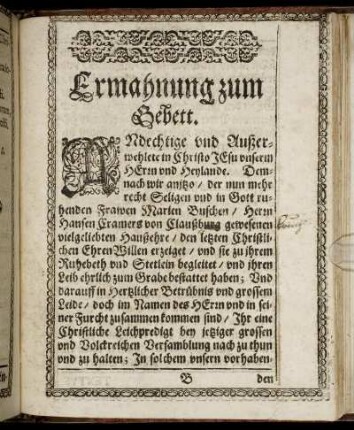 Ermahnung zum
Gebett.
ANdechtige vnd Außer-
wehlete in Christo JEsu vnserm
HErrn vnd Heylande. Dem-
nach wir anitzo / der nun mehr
recht Seligen vnd in Gott ru-
henden Frawen Marien Buschen / Herrn
Hansen Cramers von Claußburg gewesenen
vielgeliebten Haußehre / den letzten Christli-
chen Ehren Willen erzeiget / vnd sie zu jhrem
Ruhebeth vnd Stetlein begleitet / vnd jhren
Leib ehrlich zum Grabe bestattet haben; Vnd
darauff in Hertzlicher Betrübnis vnd grossem
Leide / doch im Namen des HErrn vnd in sei-
ner Furcht zusammen kommen sind / Jhr eine
Christliche Leichpredigt bey jetziger grossen
vnd Volckreichen Versamblung nach zu thun
vnd zu halten; In solchem vnserm vorhaben-
B
den